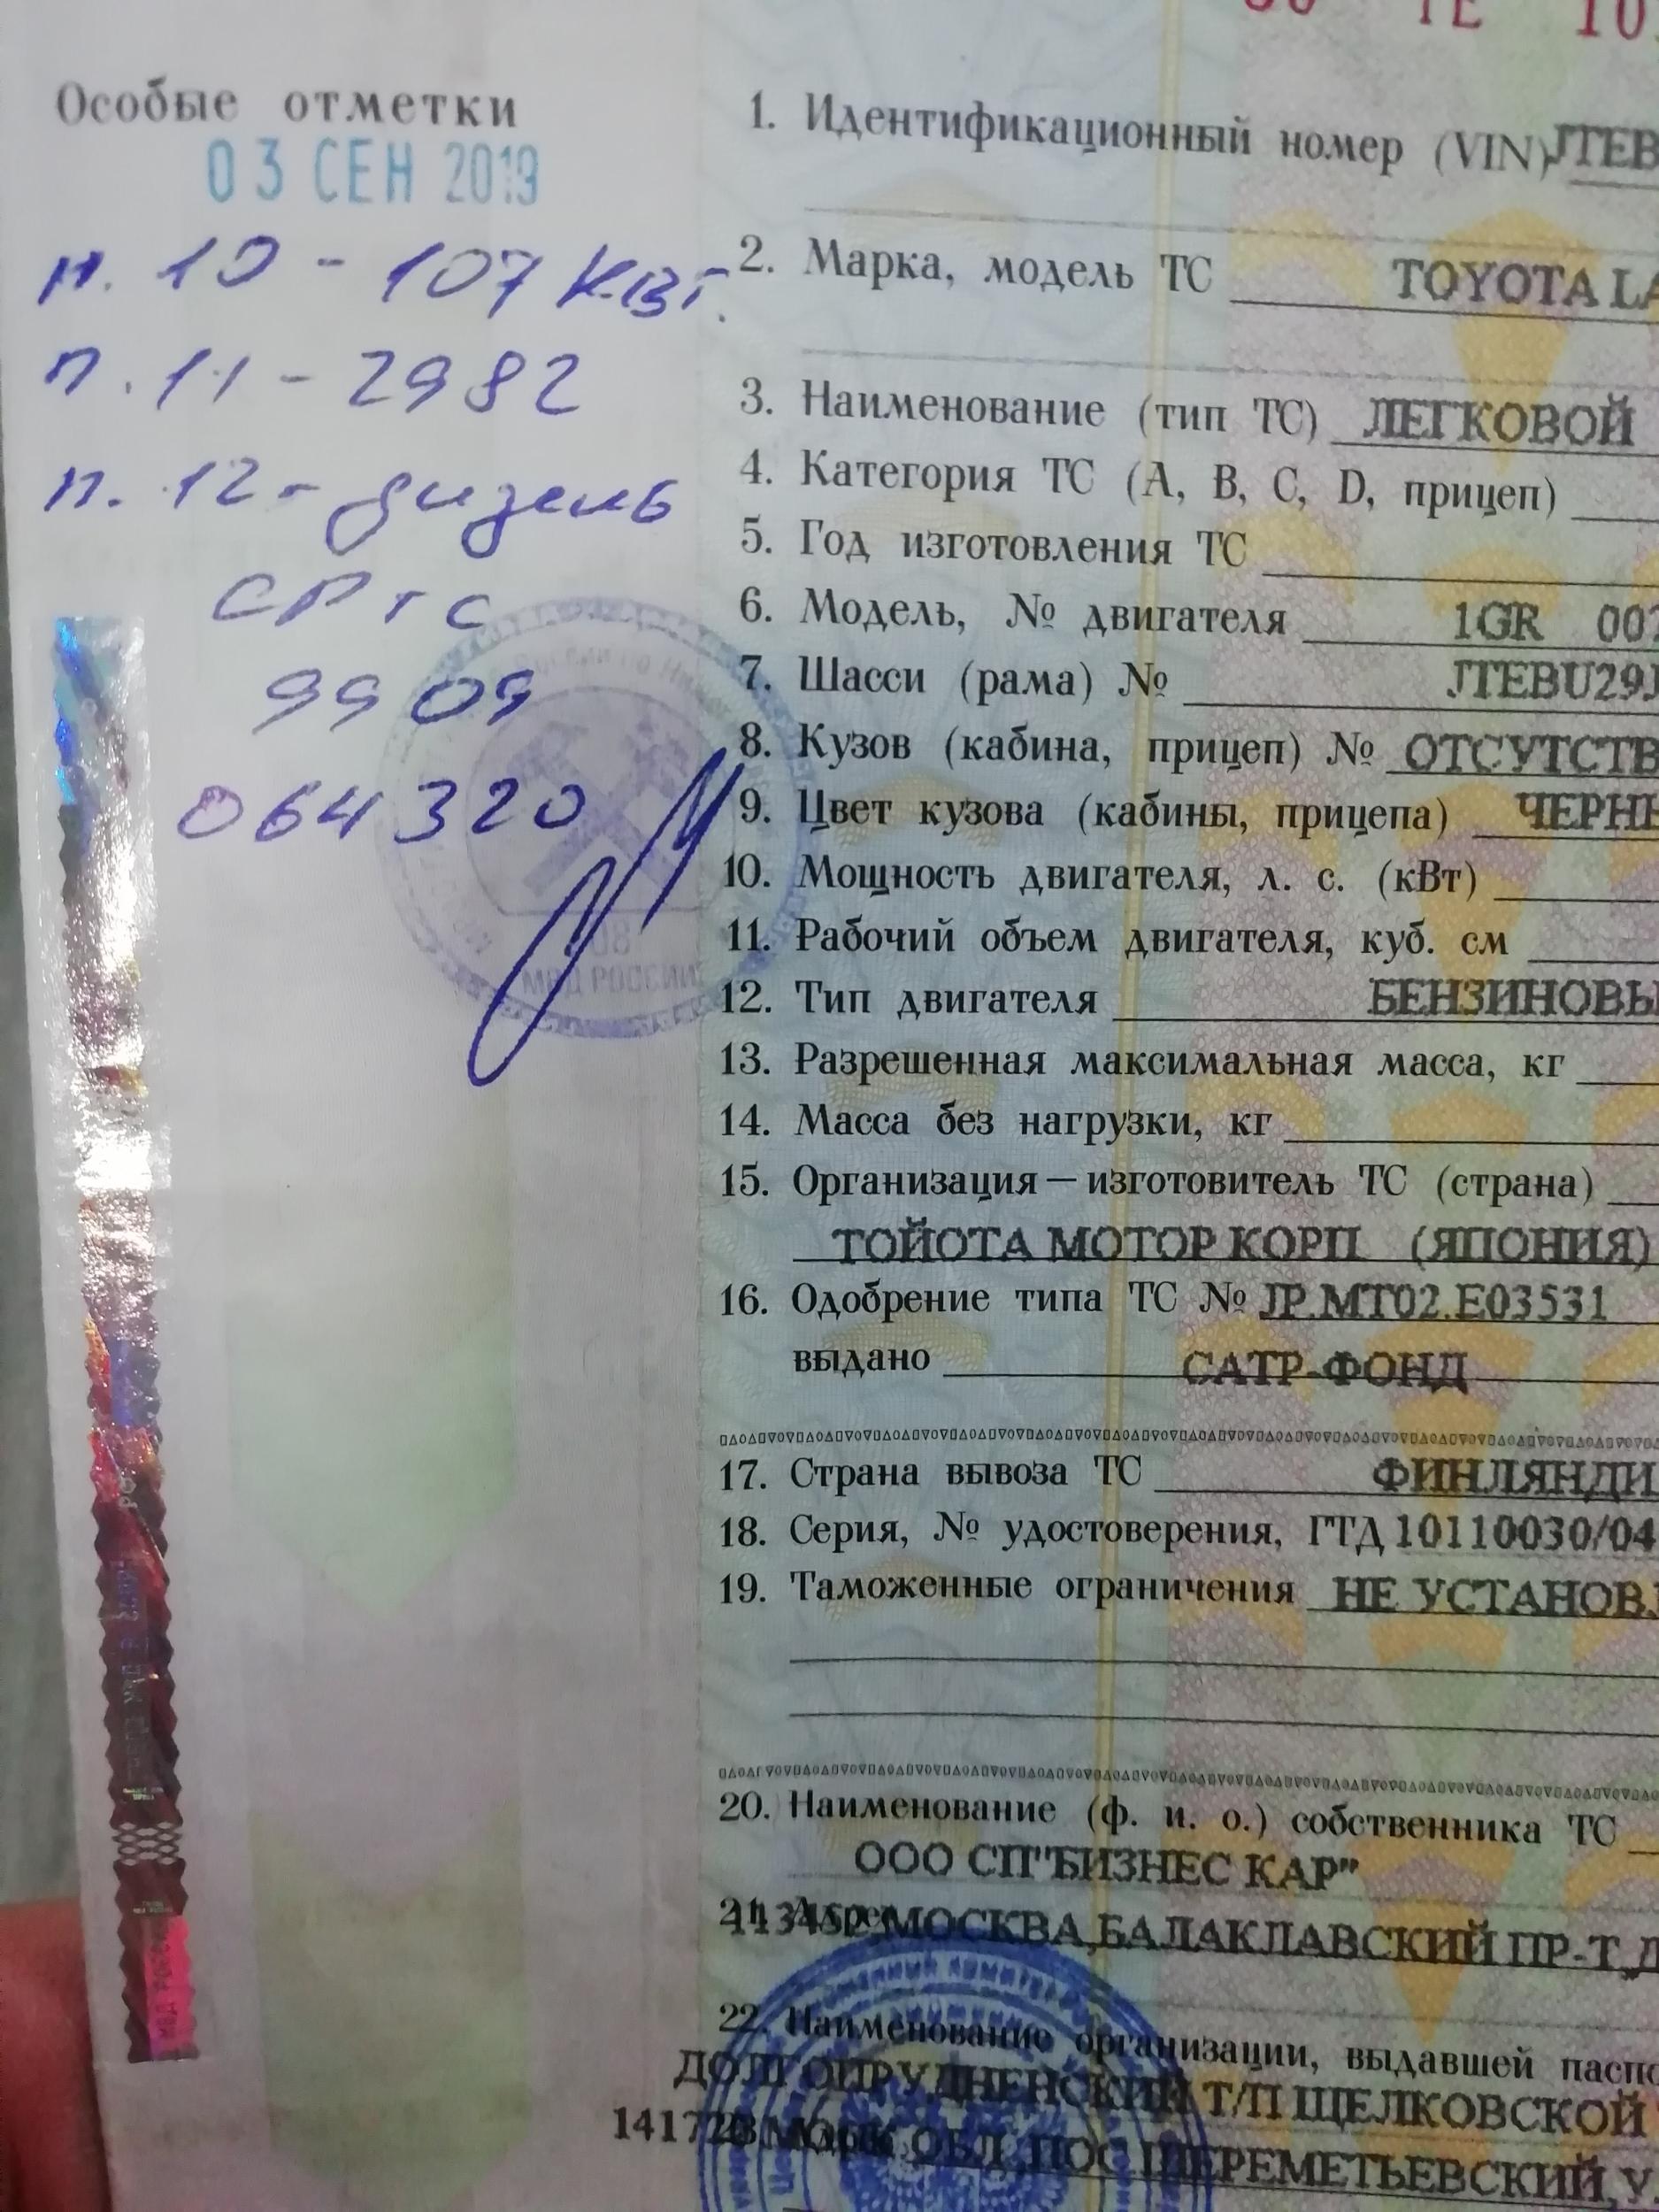 Особые отметки
03 СЕН 2019
п. 10 - 107 кВт.
п. 11 - 2982
п. 12 - дизель
СРТС
9909
064320
МВД РОССИИ
ТЕ 10
1. Идентификационный номер (VIN) JTEB
2. Марка, модель ТС TOYOTA LA
3. Наименование (тип ТС) ЛЕГКОВОЙ
4. Категория ТС (А, В, С, D, прицеп)
5. Год изготовления ТС
6. Модель, № двигателя 1GR 007
7. Шасси (рама) № JTEBU29J
8. Кузов (кабина, прицеп) № ОТСУТСТВ
9. Цвет кузова (кабины, прицепа) ЧЕРНЫ
10. Мощность двигателя, л. с. (кВт)
11. Рабочий объем двигателя, куб. см
12. Тип двигателя БЕНЗИНОВЫ
13. Разрешенная максимальная масса, кг
14. Масса без нагрузки, кг
15. Организация – изготовитель ТС (страна)
ТОЙОТА МОТОР КОРП (ЯПОНИЯ)
16. Одобрение типа ТС № JP.MT02.E03531
выдано САТР-ФОНД
17. Страна вывоза ТС ФИНЛЯНДИ
18. Серия, № удостоверения, ГТД 10110030/04
19. Таможенные ограничения НЕ УСТАНОВЛ
20. Наименование (ф. и. о.) собственника ТС
ООО СП"БИЗНЕС КАР"
21. Адрес МОСКВА,БАЛАКЛАВСКИЙ ПР-Т,Д
22. Наименование организации, выдавшей паспо
ДОЛГОПРУДНЕНСКИЙ Т/П ЩЕЛКОВСКОЙ
ОБЛ.,ПОС.ШЕРЕМЕТЬЕВСКИЙ,У